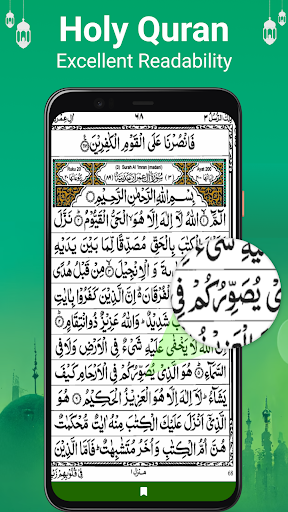 Holy Quran
Excellent Readability
اٰل عمرٰن ٦٨ تلك الرسل ٣
فَانْصُرْنَا عَلَى الْقَوْمِ الْكٰفِرِيْنَ
Ruku 20 (3) Surah Al 'Imran (madani) Ayat 200
بِسْمِ اللّٰهِ الرَّحْمٰنِ الرَّحِيْمِ
الٓمّٓ ۙ اللّٰهُ لَآ اِلٰهَ اِلَّا هُوَ الْحَيُّ الْقَيُّوْمُ نَزَّلَ
عَلَيْكَ الْكِتٰبَ بِالْحَقِّ مُصَدِّقًا لِّمَا بَيْنَ يَدَيْهِ
وَاَنْزَلَ التَّوْرٰىةَ وَ الْاِنْجِيْلَ مِنْ قَبْلُ هُدًى
لِّلنَّاسِ وَاَنْزَلَ الْفُرْقَانَ اِنَّ الَّذِيْنَ كَفَرُوْا بِاٰيٰتِ
اللّٰهِ لَهُمْ عَذَابٌ شَدِيْدٌ وَاللّٰهُ عَزِيْزٌ ذُو انْتِقَامٍ
اِنَّ اللّٰهَ لَا يَخْفٰى عَلَيْهِ شَىْءٌ فِى الْاَرْضِ وَلَا فِى
السَّمَآءِ هُوَ الَّذِىْ يُصَوِّرُكُمْ فِى الْاَرْحَامِ كَيْفَ
يَشَآءُ لَآ اِلٰهَ اِلَّا هُوَ الْعَزِيْزُ الْحَكِيْمُ هُوَ
الَّذِىْٓ اَنْزَلَ عَلَيْكَ الْكِتٰبَ مِنْهُ اٰيٰتٌ مُّحْكَمٰتٌ
هُنَّ اُمُّ الْكِتٰبِ وَاُخَرُ مُتَشٰبِهٰتٌ فَاَمَّا الَّذِيْنَ
عَلَيْهِ شَىْءٌ
يُصَوِّرُكُمْ فِى
الْعَزِيْزُ